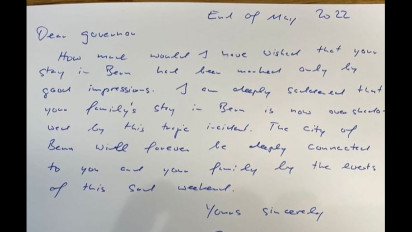 End of May 2022
Dear governor
How much would I have wished that your
stay in Bern had been marked only by
good impressions. I am deeply saddened that
your family's stay in Bern is now overshado-
wed by this tragic incident. The City of
Bern will forever be deeply connected
to you and your family by the events
of this sad weekend.
Yours sincerely